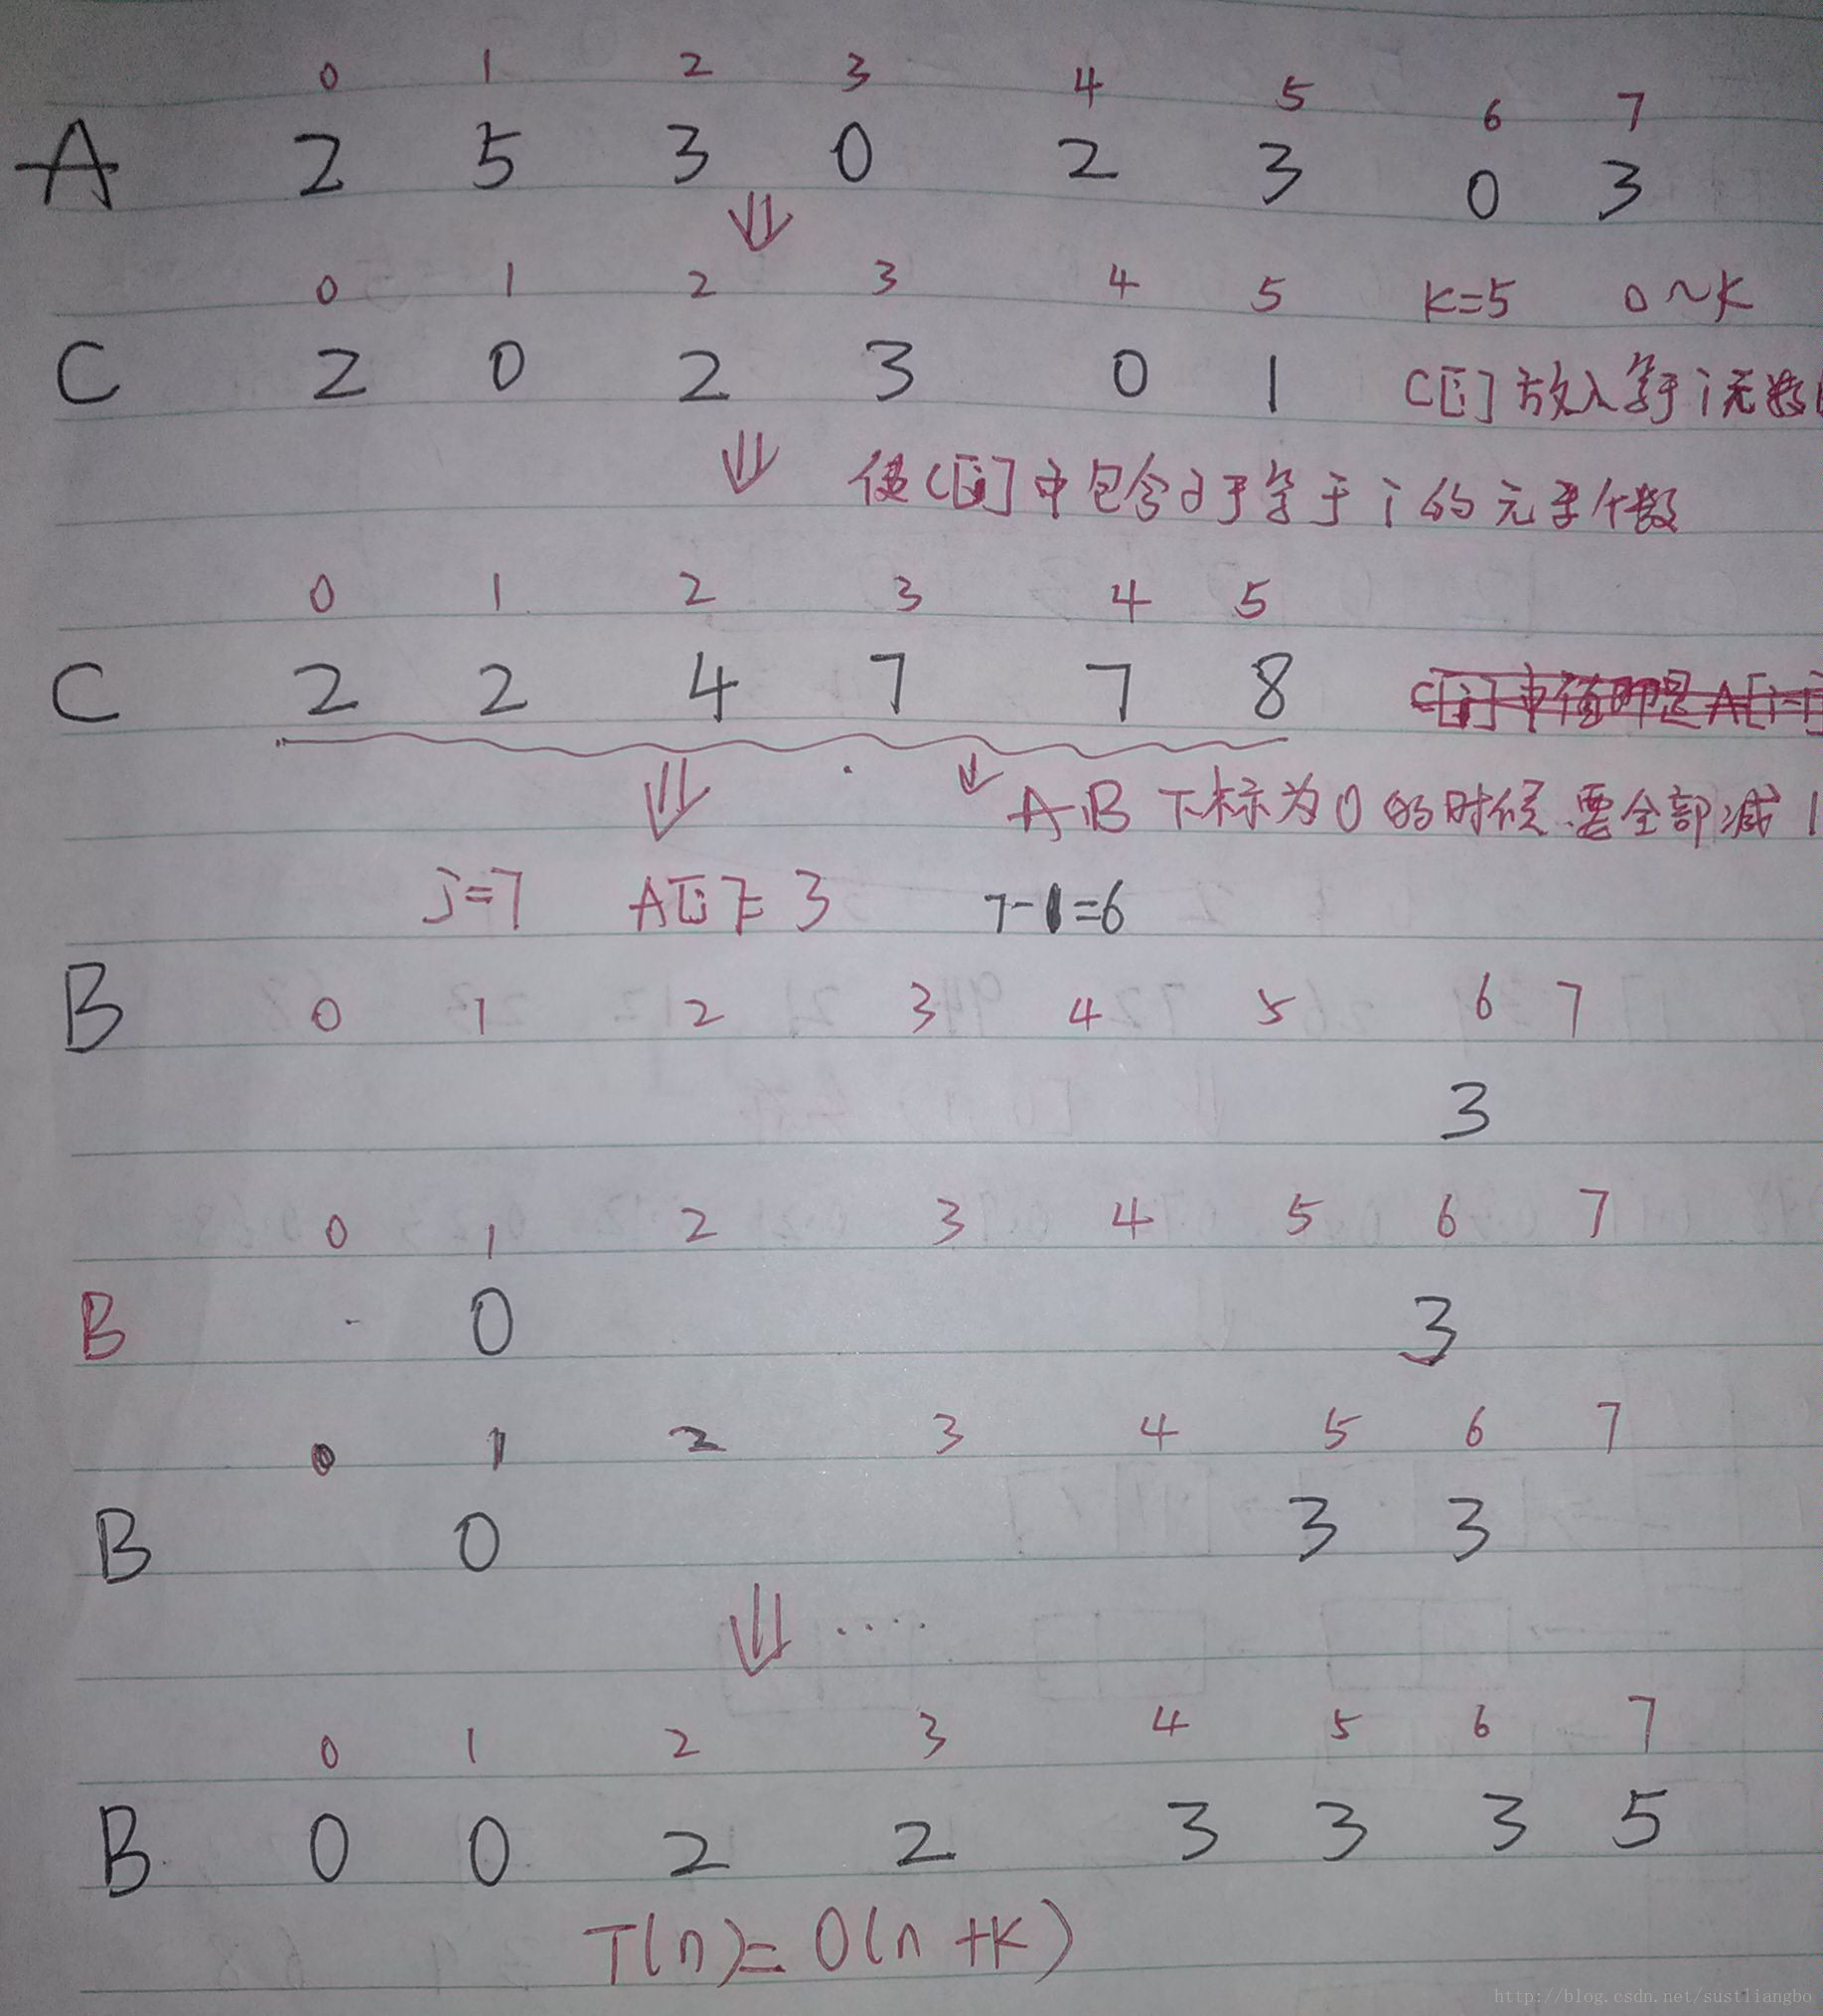 0 1 2 3 4 5 6 7
A 2 5 3 0 2 3 0 3
⇓
0 1 2 3 4 5 K=5 0~K
C 2 0 2 3 0 1 C[i]放入等于i元素
⇓ 使C[i]中包含小于等于i的元素个数
0 1 2 3 4 5
C 2 2 4 7 7 8 C[i]中值即是A[i-1]
⇓ ↓ A.B 下标为0的时候.要全部减1
j=7 A[j]=3 7-1=6
B 0 1 2 3 4 5 6 7
3
0 1 2 3 4 5 6 7
B 0 3
0 1 2 3 4 5 6 7
B 0 3 3
⇓ ....
0 1 2 3 4 5 6 7
B 0 0 2 2 3 3 3 5
T(n)=O(n+K)
http://blog.csdn.net/sustliangbo